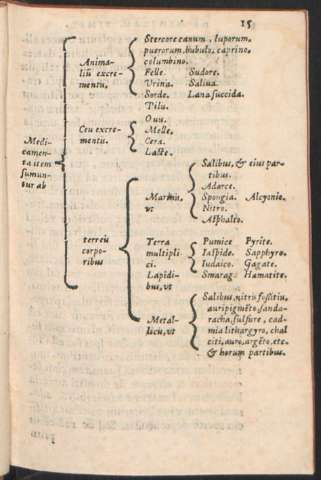 15
Medi-
camen-
ta item
sumun-
tur ab
Anima-
liũ excre-
mentis,
Stercore canum, luporum,
puerorum, bubulo, caprino,
columbino.
Felle. Sudore.
Vrina. Saliua.
Sorde. Lana succida.
Pilis.
Ceu excre-
mentis.
Ouis.
Melle,
Cera.
Lacte.
terreis
corpo-
ribus
Marinis,
vt
Salibus, & eius par-
tibus.
Adarce.
Spongia. Alcyonio.
Nitro.
Asphalto.
Terra
multipli
ci.
Lapidi-
bus, vt
Pumice Pyrite.
Iaspide. Sapphyro.
Iudaico. Gagate.
Smarag. Hæmatite.
Metal-
licis, vt
Salibus, nitris fossitiis,
auripigmẽto, sanda-
racha, sulfure, cad-
mia lithargyro, chal
citi, auro, argẽto, etc.
& horum partibus.